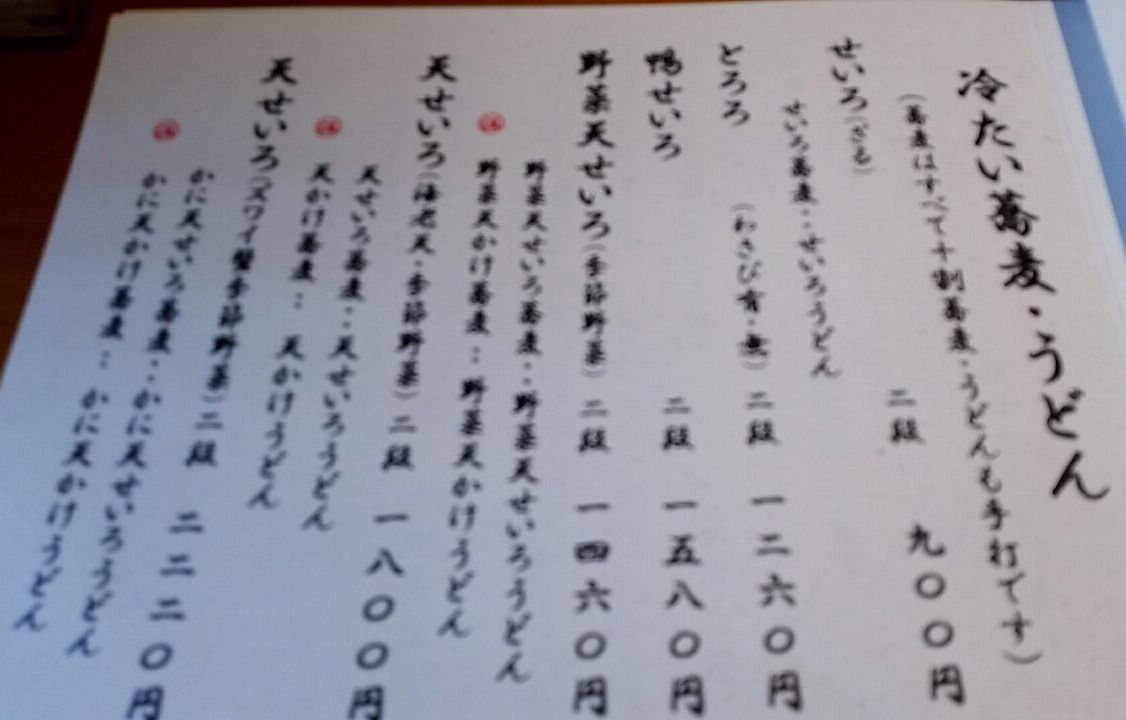 冷たい蕎麦・うどん
（蕎麦はすべて十割蕎麦・うどんも手打です）
せいろ（ざる） 二段 九〇〇円
せいろ蕎麦‥せいろうどん
とろろ （わさび有・無） 二段 一二六〇円
鴨せいろ 二段 一五八〇円
野菜天せいろ（季節野菜） 二段 一四六〇円
野菜天せいろ蕎麦‥野菜天せいろうどん
野菜天かけ蕎麦‥野菜天かけうどん
天せいろ（海老天・季節野菜） 二段 一八〇〇円
天せいろ蕎麦‥天せいろうどん
天かけ蕎麦‥天かけうどん
天せいろ（ズワイ蟹季節野菜） 二段 二二二〇円
かに天せいろ蕎麦‥かに天せいろうどん
かに天かけ蕎麦‥かに天かけうどん